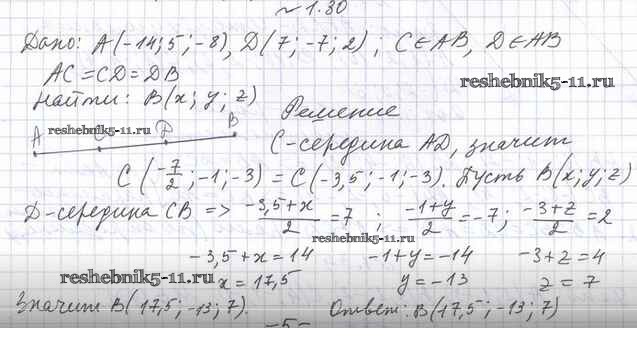 № 1.30
Дано: A(-14; 5; -8), D(7; -7; 2); C∈AB, D∈AB
AC = CD = DB
reshebnik5-11.ru
Найти: B(x; y; z)
Решение
A C D B
reshebnik5-11.ru
C-середина AD, значит
C(-7/2; -1; -3) = C(-3,5; -1; -3). Пусть B(x; y; z)
D-середина CB => (-3,5+x)/2 = 7; (-1+y)/2 = -7; (-3+z)/2 = 2
reshebnik5-11.ru
-3,5+x = 14 -1+y = -14 -3+z = 4
reshebnik5-11.ru
x = 17,5 y = -13 z = 7
Значит B(17,5; -13; 7). Ответ: B(17,5; -13; 7)